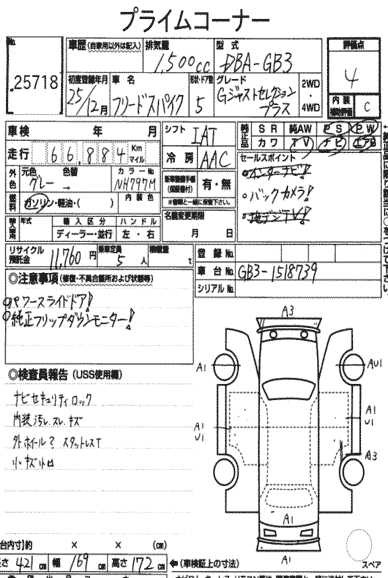 プライムコーナー
No. 25718
車歴 (自家用以外は記入) 排気量 1,500cc 型式 DBA-GB3 評価点 4
初度登録年月 25/12月 車名 フリードスパイク ドア数 5 グレード Gジャストセレクションプラス 2WD・4WD 内装 C
車検 年 月 シフト IAT 純正品 SR 純AW PS PW
走行 66,884 Km マイル 冷房 AAC カワ TV ナビ エアB
外色 元色 グレー 色替 → カラーNo. NH797M 有・無 セールスポイント
○インターナビ!
燃料 ガソリン・軽油・( ) 内装色 ○バックカメラ!
輸入区分 ハンドル 名義変更期限 ○地デジTV!
ディーラー・並行 左・右 月 日
リサイクル預託金 11,760円 乗車定員 5人 積載量 t 登録No.
車台No. GB3-1518739
シリアルNo.
◎注意事項 (修復・不具合箇所および状態等)
○パワースライドドア!
○純正フリップダウンモニター!
◎検査員報告 (USS使用欄)
ナビセキュリティロック
内装汚レ、スレ、キズ
外ホイール? スタットレスT
小キズ凹
A3
A1
AU1
A1
U1
A1
A1
U1
A3
A1
A1
スペア
荷台内寸)約 × × (cm)
長さ 421 cm 幅 169 cm 高さ 172 cm ←(車検証上の寸法)